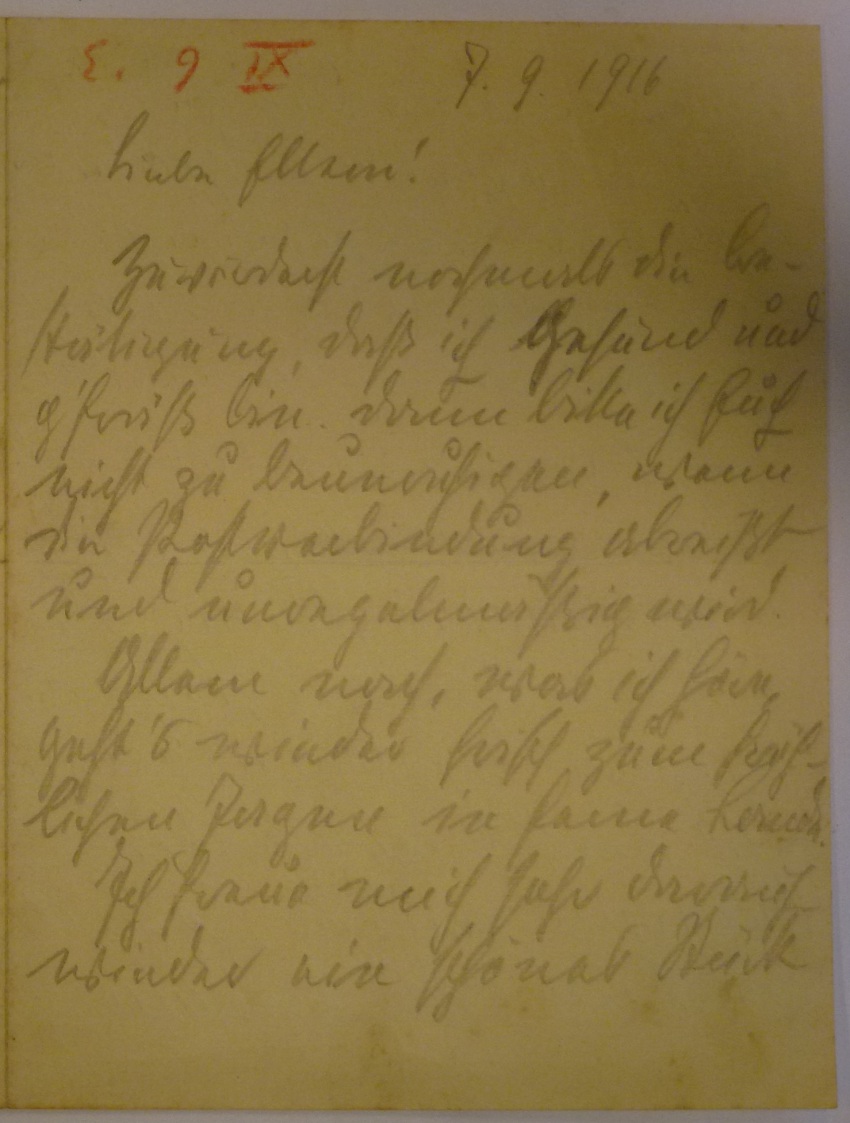 E. 9 IX 7. 9. 1916
Liebe Eltern!
Zuvorderst nochmals die Be-
stätigung, daß ich Gesund und
g'friß bin. Dann bitte ich Euch
nicht zu beunruhigen, wenn
die Postverbindung abreißt
und unregelmäßig wird.
Allem nach, was ich höre,
geht's wieder frisch zum fröh-
lichen Jagen in ferne Lande.
Ich freue mich sehr darauf
wieder ein schönes Stück